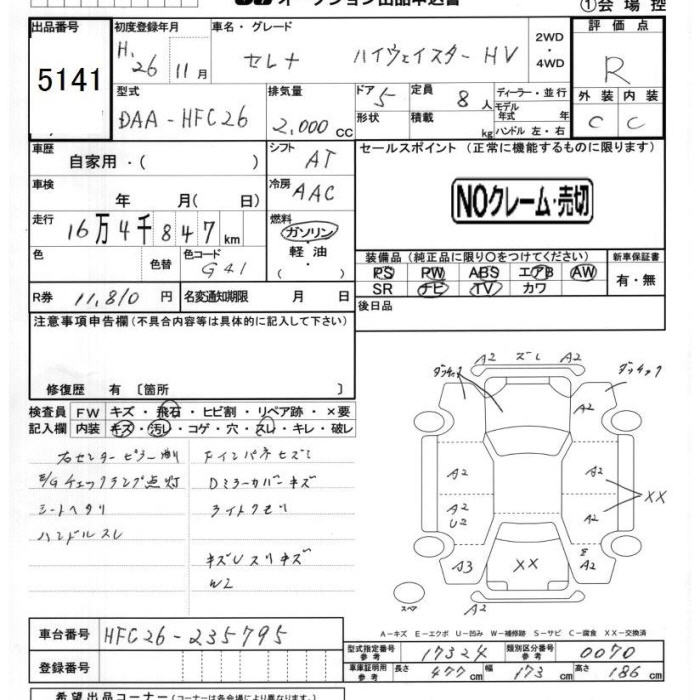 ①会場控
出品番号 5141
初度登録年月 H. 26 11月
車名・グレード セレナ ハイウェイスターHV
2WD・4WD
評価点 R
外装 C 内装 C
型式 DAA-HFC26
排気量 2,000cc
ドア 5
形状
定員 8人
積載 kg
ディーラー・並行
モデル年式 年
ハンドル 左・右
車歴 自家用・( )
シフト AT
車検 年 月( 日)
冷房 AAC
走行 16万4千847km
燃料 ガソリン・軽油・
色 色替 色コード G41
R券 11,810円
名変通知期限 月 日
セールスポイント (正常に機能するものに限ります)
NOクレーム・売切
装備品 (純正品に限り○をつけてください)
PS PW ABS エアB AW
SR ナビ TV カワ
新車保証書 有・無
後日品
注意事項申告欄(不具合内容等は具体的に記入して下さい)
修復歴 有 〔箇所 〕
検査員記入欄
FW キズ・飛石・ヒビ割・リペア跡・×要
内装 キズ・汚レ・コゲ・穴・スレ・キレ・破レ
E/Gチェックランプ点灯
シートヘタリ
ハンドルスレ
Fインパネキズ
Dミラーカバーキズ
ライトクモリ
W2
A2 ズレ A2
A2
A2
A2
A2
U2
A2
XX
XX
A3
E
A2
スペア
A-キズ E-エクボ U-凹み W-補修跡 S-サビ C-腐食 XX-交換済
車台番号 HFC26-235795
登録番号
型式指定番号 参考 17324
類別区分番号 参考 0070
車庫証明用 参考 長さ 477cm 幅 173cm 高さ 186cm
希望出品コーナー(コーナーは各会場により異なります)